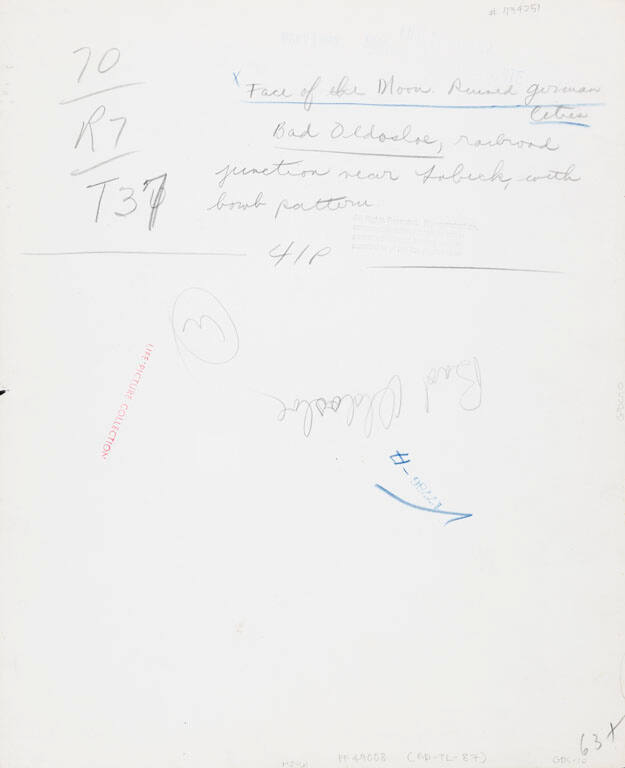 # 1134251
70
R7
T37
x Face of the Moon. Ruined german
Cities
Bad Oldosloe, railroad
junction near Lubeck, with
bomb pattern.
41P
3
LIFE PICTURE COLLECTION
Bad Oldosloe
63x
PF49008 (BD-TL-87)